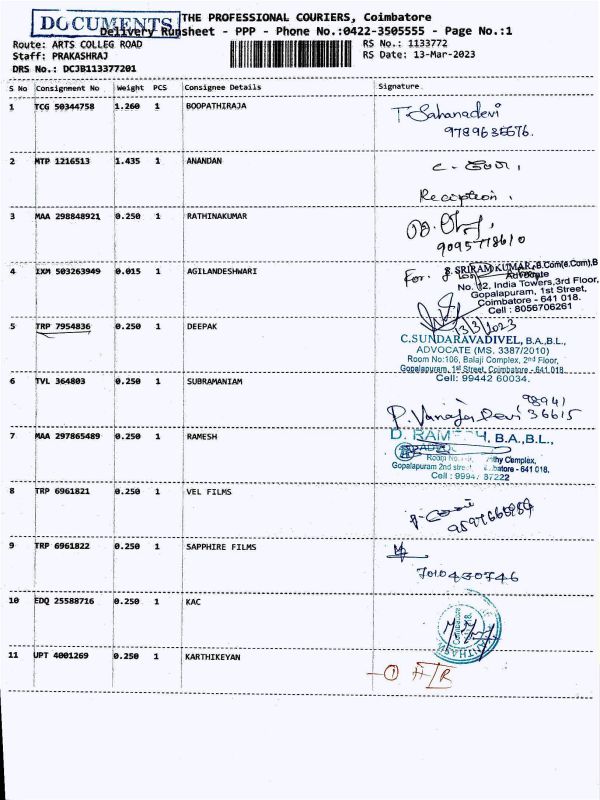 DOCUMENTS
THE PROFESSIONAL COURIERS, Coimbatore
Delivery Runsheet - PPP - Phone No.:0422-3505555 - Page No.:1
Route: ARTS COLLEG ROAD
RS No.: 1133772
Staff: PRAKASHRAJ
RS Date: 13-Mar-2023
DRS No.: DCJB113377201
S No Consignment No Weight PCS Consignee Details Signature
1 TCG 50344758 1.260 1 BOOPATHIRAJA
T. Sahanadevi
9789635576.
2 MTP 1216513 1.435 1 ANANDAN
Reciption,
3 MAA 298848921 0.250 1 RATHINAKUMAR
9095778610
4 IXM 503263949 0.015 1 AGILANDESHWARI
For.
S. SRIRAM KUMAR, B.Com(e.Com),B
Advocate
No. 12, India Towers,3rd Floor,
Gopalapuram, 1st Street,
Coimbatore - 641 018.
Cell : 8056706261
13/3/2023
5 TRP 7954836 0.250 1 DEEPAK
C.SUNDARAVADIVEL, B.A.,B.L.,
ADVOCATE (MS. 3387/2010)
Room No:106, Balaji Complex, 2nd Floor,
Gopalapuram, 1st Street, Coimbatore - 641 018.
Cell: 99442 60034.
6 TVL 364803 0.250 1 SUBRAMANIAM
98941
P. Vanaja Devi 36615
7 MAA 297865489 0.250 1 RAMESH
D. RAMESH, B.A.,B.L.,
Complex,
Gopalapuram 2nd street, Coimbatore - 641 018,
Cell : 9994 87222
8 TRP 6961821 0.250 1 VEL FILMS
9 TRP 6961822 0.250 1 SAPPHIRE FILMS
7010430746
10 EDQ 25588716 0.250 1 KAC
11 UPT 4001269 0.250 1 KARTHIKEYAN